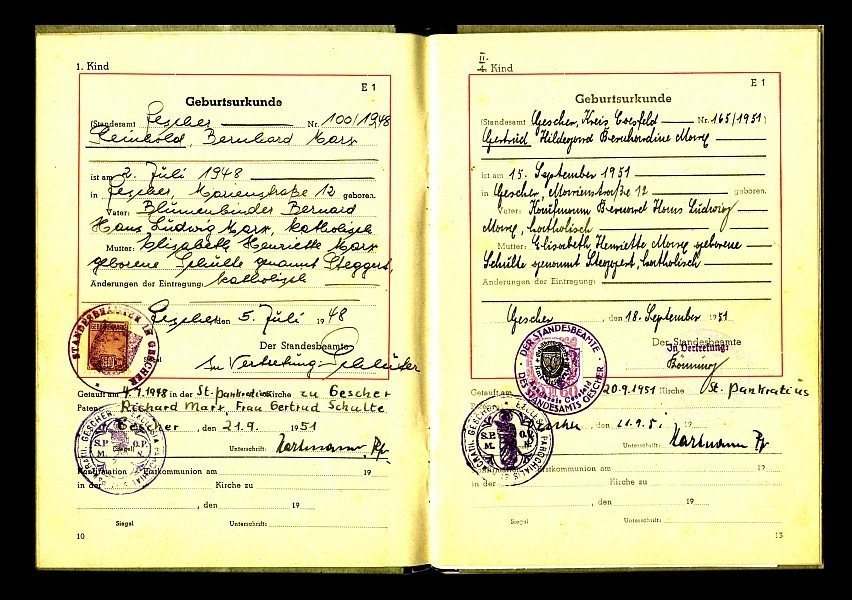 1. Kind
E 1
Geburtsurkunde
(Standesamt Gescher Nr. 100/1948
Reinhold, Bernhard Marx
ist am 2. Juli 1948
in Gescher, Marienstraße 12 geboren.
Vater: Blumenbinder Bernard
Hans Ludwig Marx, katholisch
Mutter: Elisabeth Henriette Marx
geborene Schulte genannt Steggert,
Änderungen der Eintragung: katholisch
Gescher den 5. Juli 1948
Der Standesbeamte
Siegel In Vertretung:
STANDESBEAMTER IN GESCHER
Getauft am 4.7.1948 in der St. Pankratius Kirche zu Gescher
Paten: Richard Marx, Frau Gertrud Schulte
Gescher, den 21.9. 1951
(Siegel) Unterschrift: Hartmann Pfr.
S.P. O.P.
M. N.
Konfirmation / Erstkommunion am 19
in der Kirche zu
, den 19
Siegel Unterschrift:
10
II.
4. Kind
E 1
Geburtsurkunde
(Standesamt Gescher, Kreis Coesfeld Nr. 165/1951)
Gertrud Hildegard Bernhardine Marx
ist am 15. September 1951
in Gescher, Marienstraße 12 geboren.
Vater: Kaufmann Bernard Hans Ludwig
Marx, katholisch
Mutter: Elisabeth Henriette Marx geborene
Schulte genannt Steggert, katholisch
Änderungen der Eintragung:
Gescher, den 18. September 1951
Der Standesbeamte
In Vertretung:
DER STANDESBEAMTE
DES STANDESAMTS GESCHER
Getauft am 20.9.1951 Kirche St. Pankratius
Gescher, den 21.9.51
Unterschrift: Hartmann Pfr
S.P. O.P.
M. N.
Erstkommunion am 19
in der Kirche zu
, den 19
Siegel Unterschrift:
13